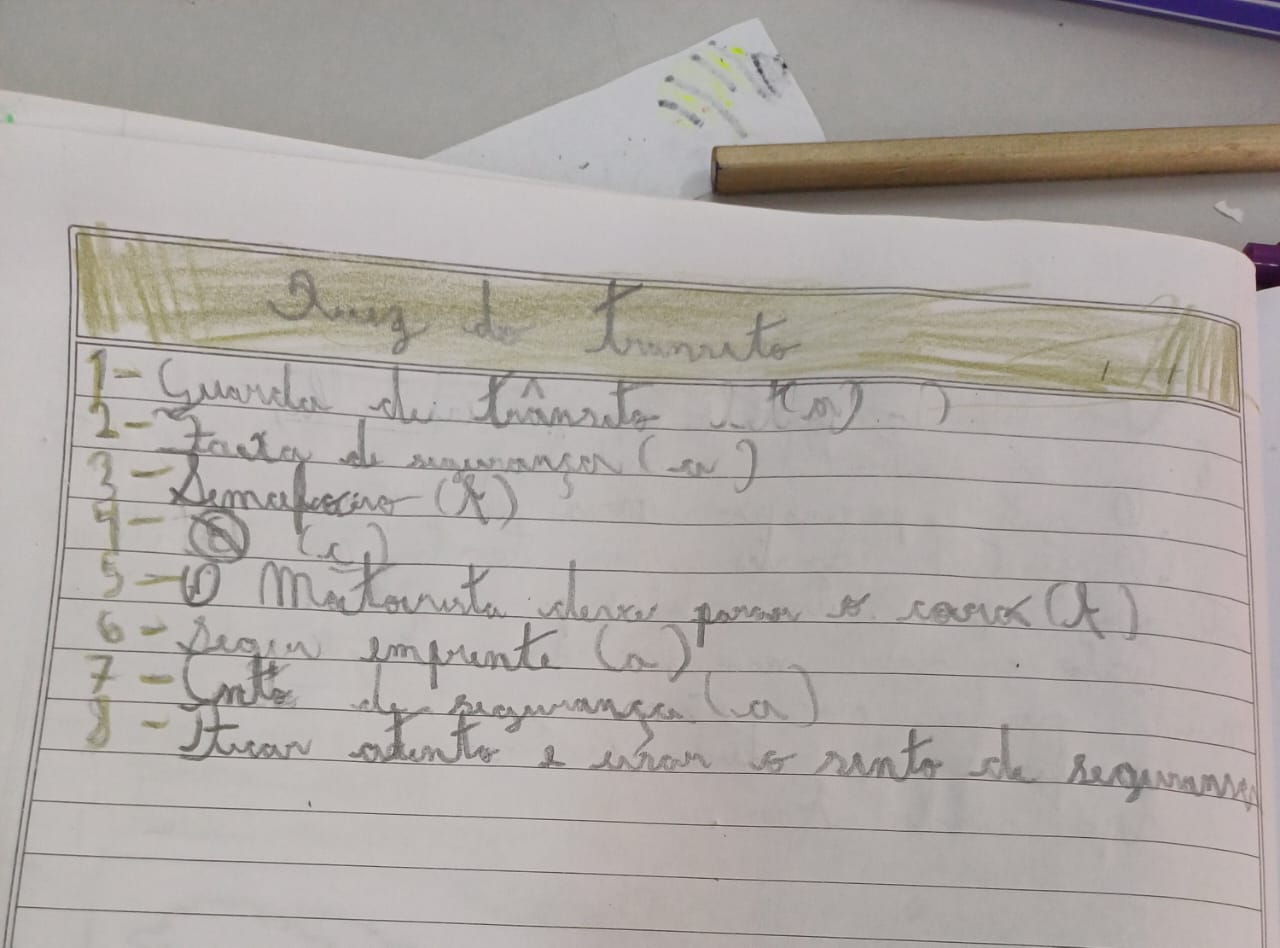 Quiz do trânsito
1- Guarda de trânsito (a)
2- Faixa de segurança (a)
3- Semaforo (b)
4- (c)
5- O Motorista deve parar o carro (b)
6- Seguir emprente (a)
7- Cinto de segurança (a)
8- Ficar atento e usar o sinto de seguransa